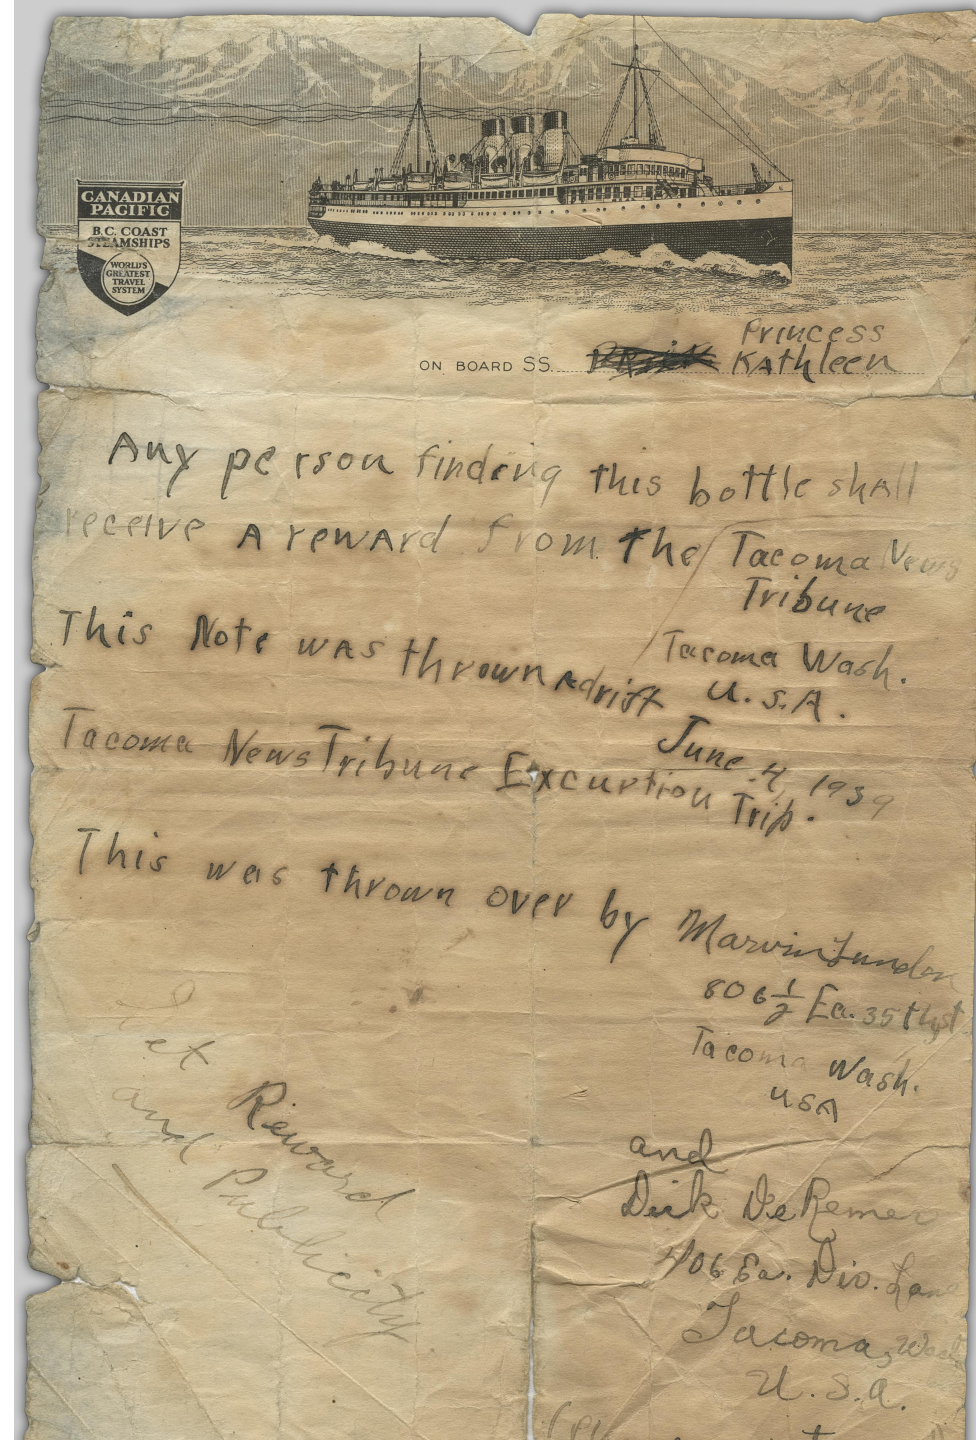 CANADIAN
PACIFIC
B.C. COAST
STEAMSHIPS
WORLD'S
GREATEST
TRAVEL
SYSTEM
Princess
ON BOARD SS. Kathleen
Any person finding this bottle shall
receive A reward from the Tacoma News
Tribune
Tacoma Wash.
U.S.A.
This Note was thrown Adrift
June 4, 1939
Tacoma News Tribune Excurtion Trip.
This was thrown over by Marvin
806 1/2 Ea. 35th st
Tacoma Wash.
USA
and
Dirk DeRemer
406 Ea. Div. Lane
Tacoma, Wash
U.S.A.
Get Reward
and Publicity